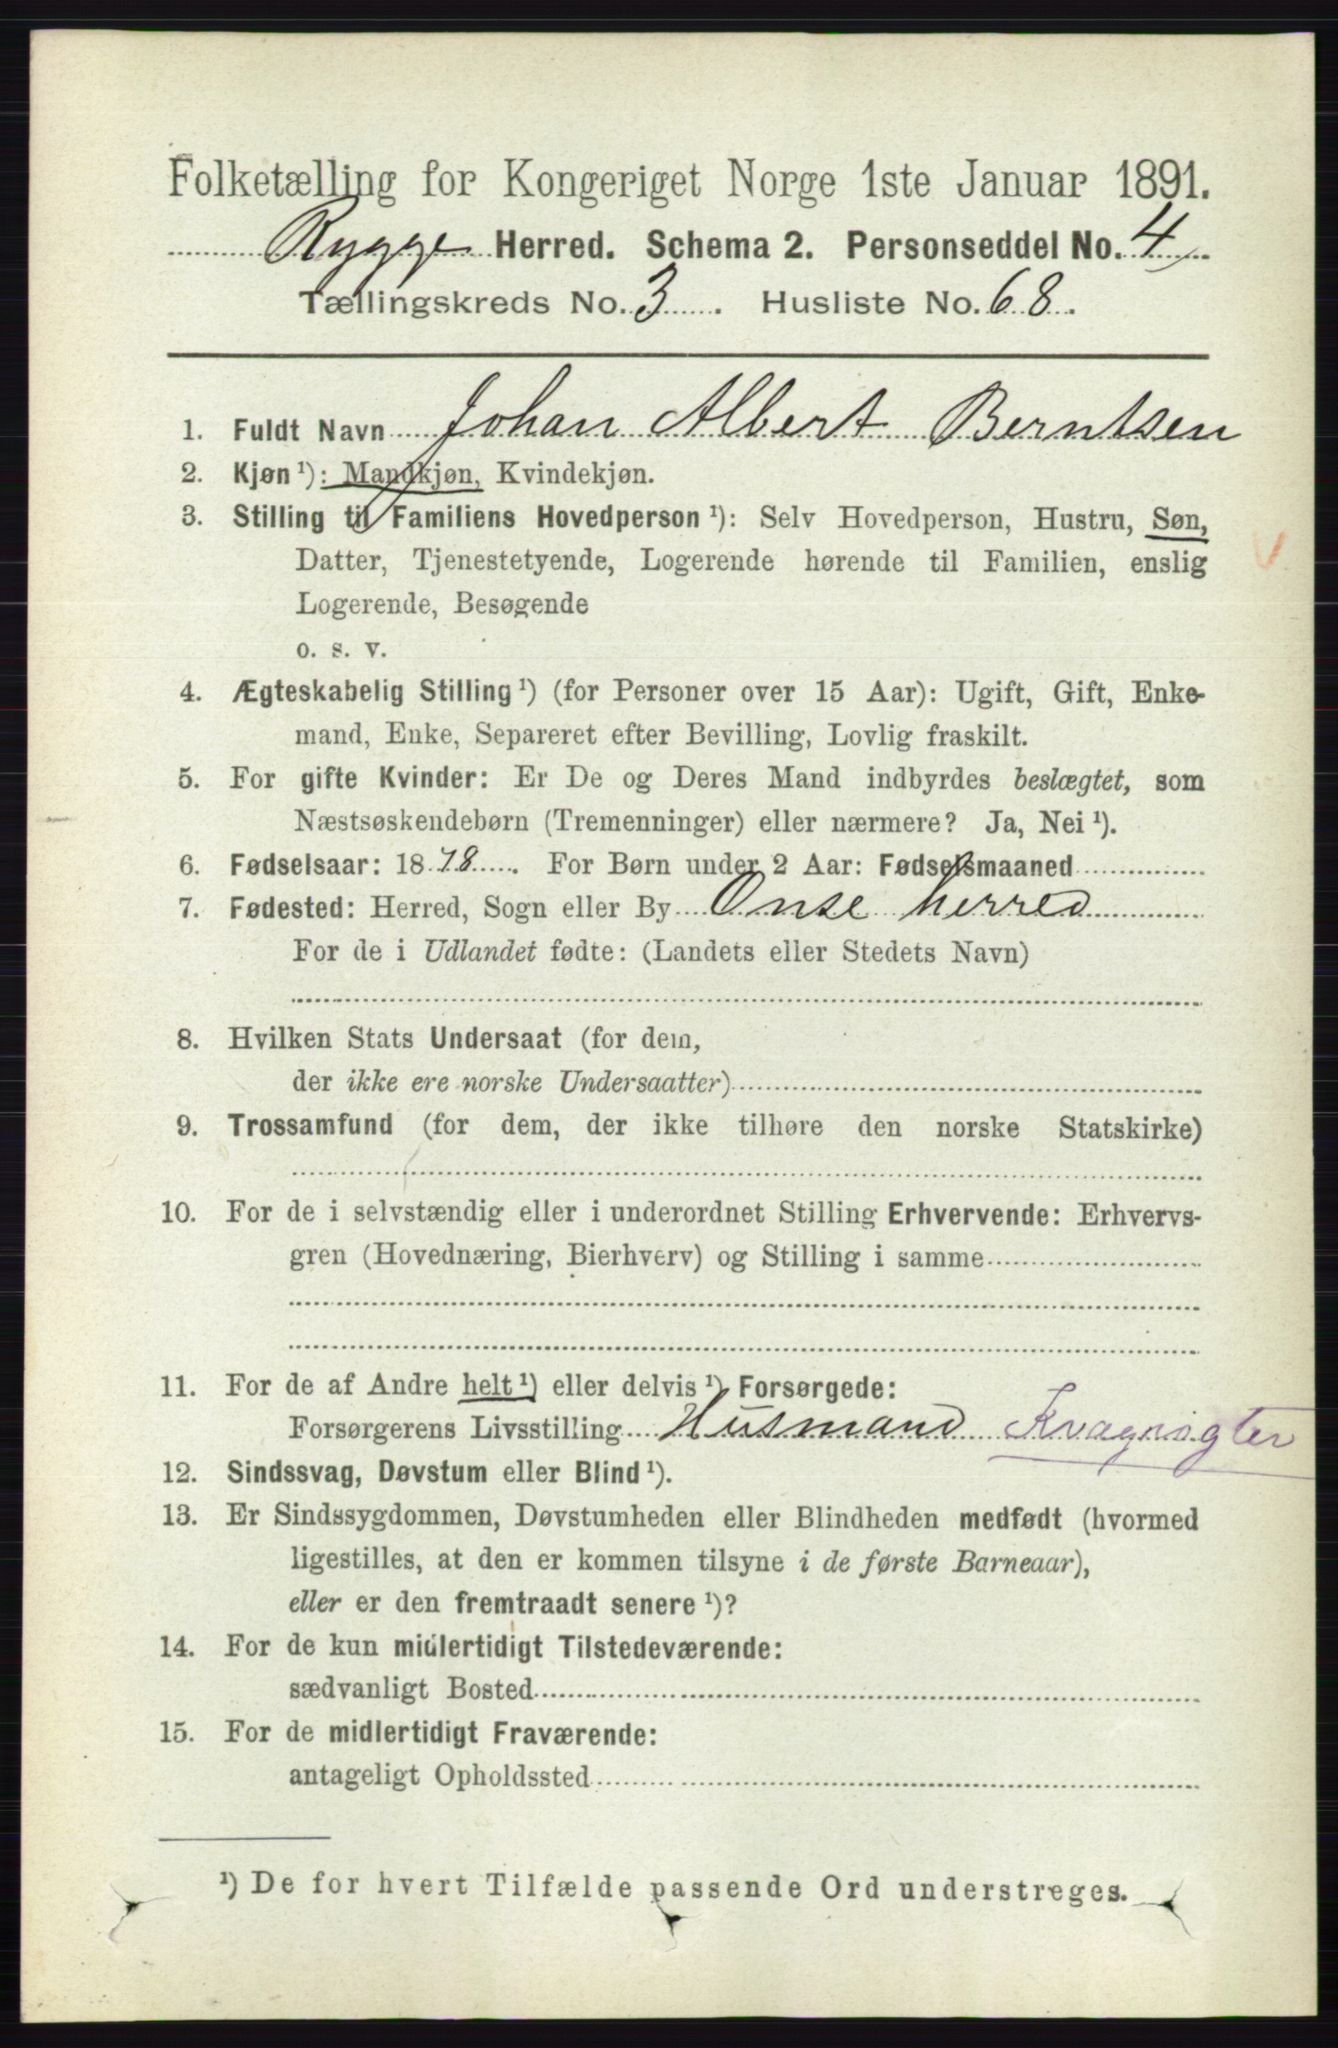 Folketælling for Kongeriget Norge 1ste Januar 1891.
Rygge Herred. Schema 2. Personseddel No. 4
Tællingskreds No. 3. Husliste No. 68.
1. Fuldt Navn Johan Albert Berntsen
2. Kjøn ¹): Mandkjøn, Kvindekjøn.
3. Stilling til Familiens Hovedperson ¹): Selv Hovedperson, Hustru, Søn,
Datter, Tjenestetyende, Logerende hørende til Familien, enslig
Logerende, Besøgende
o. s. v.
4. Ægteskabelig Stilling ¹) (for Personer over 15 Aar): Ugift, Gift, Enke-
mand, Enke, Separeret efter Bevilling, Lovlig fraskilt.
5. For gifte Kvinder: Er De og Deres Mand indbyrdes beslægtet, som
Næstsøskendebørn (Tremenninger) eller nærmere? Ja, Nei ¹).
6. Fødselsaar: 1878. For Børn under 2 Aar: Fødselsmaaned
7. Fødested: Herred, Sogn eller By Onsø herred
For de i Udlandet fødte: (Landets eller Stedets Navn)
8. Hvilken Stats Undersaat (for dem,
der ikke ere norske Undersaatter)
9. Trossamfund (for dem, der ikke tilhøre den norske Statskirke)
10. For de i selvstændig eller i underordnet Stilling Erhvervende: Erhvervs-
gren (Hovednæring, Bierhverv) og Stilling i samme
11. For de af Andre helt ¹) eller delvis ¹) Forsørgede:
Forsørgerens Livsstilling Husmand Kvægrøgter
12. Sindssvag, Døvstum eller Blind ¹).
13. Er Sindssygdommen, Døvstumheden eller Blindheden medfødt (hvormed
ligestilles, at den er kommen tilsyne i de første Barneaar),
eller er den fremtraadt senere ¹)?
14. For de kun midlertidigt Tilstedeværende:
sædvanligt Bosted
15. For de midlertidigt Fraværende:
antageligt Opholdssted
¹) De for hvert Tilfælde passende Ord understreges.